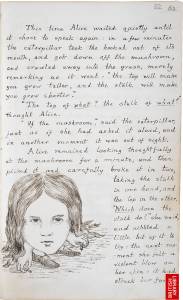 This time Alice waited quietly until
it chose to speak again: in a few minutes
the caterpillar took the hookah out of its
mouth, and got down off the mushroom,
and crawled away into the grass, merely
remarking as it went: "the top will make
you grow taller, and the stalk will make
you grow shorter."
"The top of what? the stalk of what?"
thought Alice.
"Of the mushroom," said the caterpillar,
just as if she had asked it aloud, and
in another moment was out of sight.
Alice remained looking thoughtfully
at the mushroom for a minute, and then
picked it and carefully broke it in two,
taking the stalk
in one hand, and
the top in the other.
"Which does the
stalk do?" she said,
and nibbled a
little bit of it to
try: the next mo-
ment she felt a
violent blow on
her chin: it had
struck her foot
BRITISH
LIBRARY